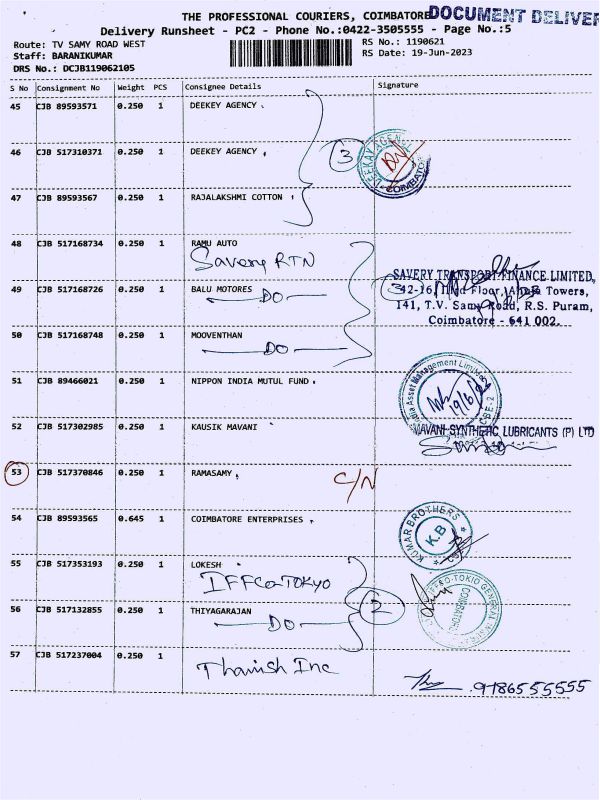 THE PROFESSIONAL COURIERS, COIMBATORE DOCUMENT DELIVER
Delivery Runsheet - PC2 - Phone No.:0422-3505555 - Page No.:5
Route: TV SAMY ROAD WEST RS No.: 1190621
Staff: BARANIKUMAR RS Date: 19-Jun-2023
DRS No.: DCJB119062105
S No Consignment No Weight PCS Consignee Details Signature
45 CJB 89593571 0.250 1 DEEKEY AGENCY
46 CJB 517310371 0.250 1 DEEKEY AGENCY
3
DEEKAY AGENCY COIMBATORE
47 CJB 89593567 0.250 1 RAJALAKSHMI COTTON
48 CJB 517168734 0.250 1 RAMU AUTO
Savery RTN
SAVERY TRANSPORT FINANCE LIMITED,
49 CJB 517168726 0.250 1 BALU MOTORES
DO
3
342-16, IIInd Floor, Ahuja Towers,
141, T.V. Samy Road, R.S. Puram,
Coimbatore - 641 002.
50 CJB 517168748 0.250 1 MOOVENTHAN
DO
51 CJB 89466021 0.250 1 NIPPON INDIA MUTUL FUND
Asset Management Limited
CBE-2
19/6/23
52 CJB 517302985 0.250 1 KAUSIK MAVANI
MAVANI SYNTHETIC LUBRICANTS (P) LTD
53 CJB 517370846 0.250 1 RAMASAMY
C/N
54 CJB 89593565 0.645 1 COIMBATORE ENTERPRISES
KUMAR BROTHERS
K.B
55 CJB 517353193 0.250 1 LOKESH
IFFCO TOKYO
56 CJB 517132855 0.250 1 THIYAGARAJAN
DO
2
IFFCO-TOKIO GENERAL
COIMBATORE
57 CJB 517237004 0.250 1
Thanish Inc
9786555555